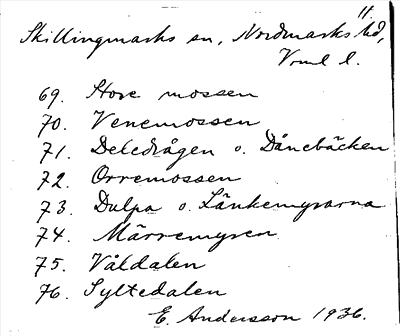 11.
Skillingmarks sn, Nordmarks hd,
Vrml l.
69. Store mossen
70. Venemossen
71. Deledrågen o. Dånebäcken
72. Orremossen
73. Dulpa o. Länkemyrarna
74. Märremyren
75. Våldalen
76. Syltedalen
E. Andersson 1936.